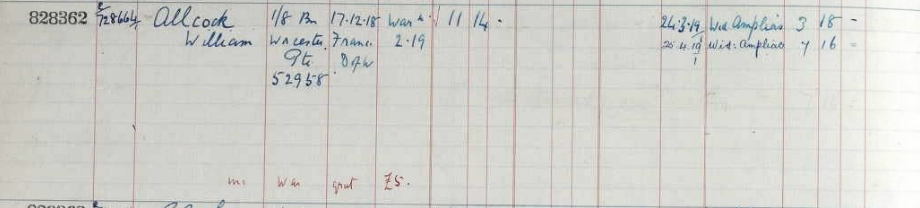 828362 E/728664 Allcock 1/8 Bn 17.12.18 War 11 14 - 24.3.19 Wid. Amplias 3 18 -
William Worcester France 2.19 25.4.19 Wid. Amplias 7 16 -
Pte DofW
52958
War grat £5.